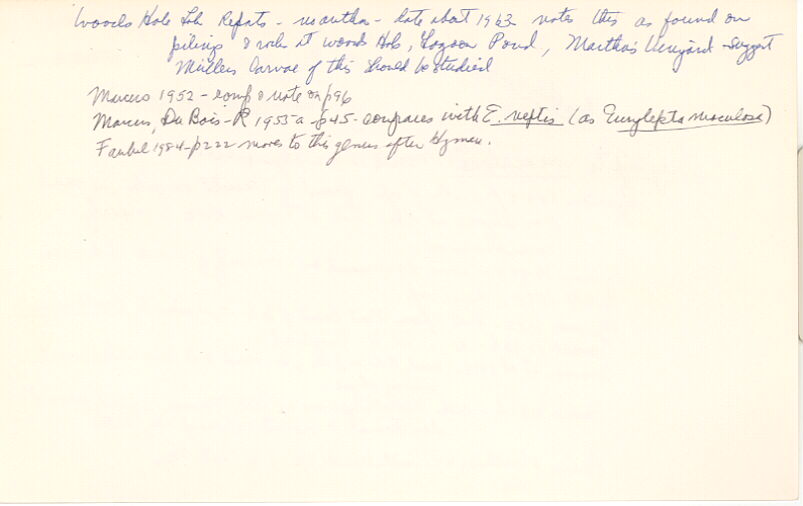 Woods Hole Lab Reports - no author - late about 1963 notes this as found on
pilings & rocks at Woods Hole, Lagoon Pond, Martha's Vineyard - suggest
Mullers larvae of this should be studied
Marcus 1952 - comp & note on p96
Marcus, Du Bois-R 1955-a - p45 - compares with E. neptis (as Eurylepta maculosa)
Faubel 1984 - p222 moves to this genus after Hyman.